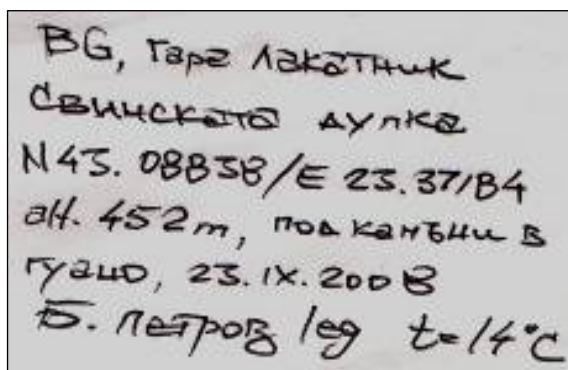 BG, гара Лакатник
Свинската дупка
N43.08838/E 23.37184
alt. 452m, под камъни в
гуано, 23.IX.2008
Б. Петров leg t=14°C